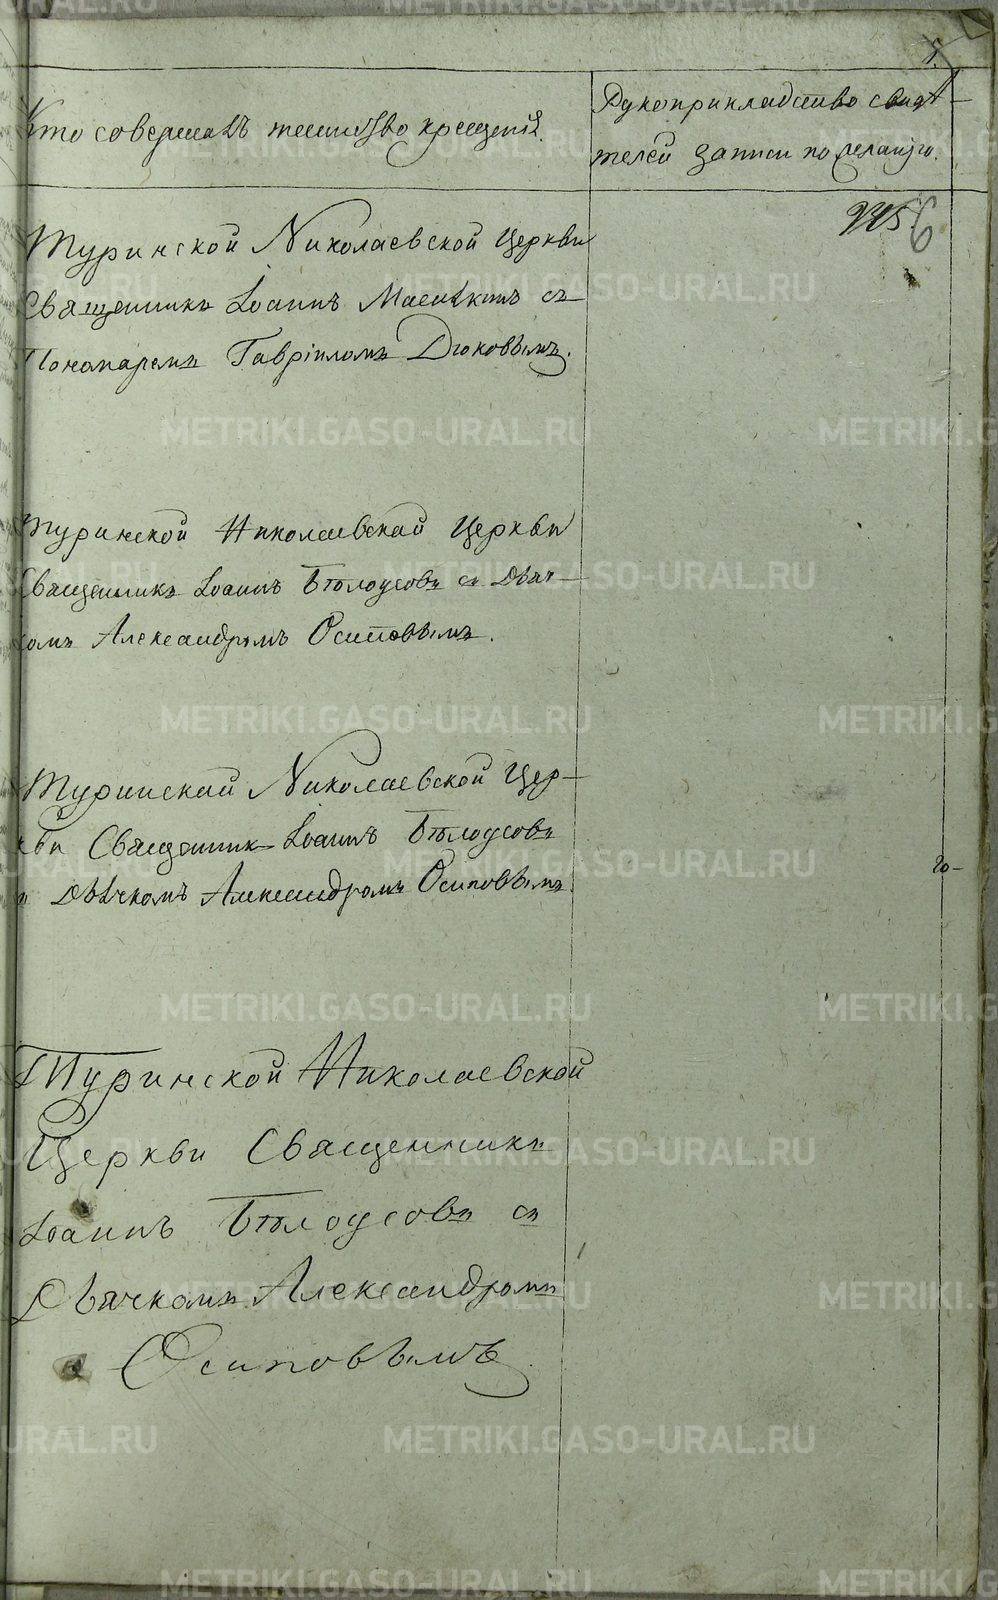 5.
Кто совершалъ таинство крещенія.
Рукоприкладство свидѣ-
телей записи по желанію.
6
Туринской Николаевской Церкви
Священникъ Іоаннъ съ
Пономаремъ Гавріиломъ Дюковымъ.
Туринской Николаевской Церкви
Священникъ Іоаннъ Бѣлоусовъ съ Дьяч-
комъ Александромъ Осиповымъ.
Туринской Николаевской Цер-
кви Священникъ Іоаннъ Бѣлоусовъ
съ Дьячкомъ Александромъ Осиповымъ
го-
Туринской Николаевской
Церкви Священникъ
Іоаннъ Бѣлоусовъ съ
Дьячкомъ Александромъ
Осиповымъ
METRIKI.GASO-URAL.RU